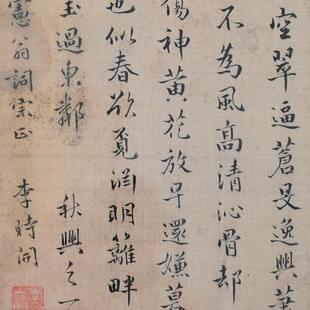 空翠逼蒼旻逸興
不為風高清沁骨却
傷神黃花放早還嫌
也似春欲覓淵明籬畔
玉過東鄰
秋興之
憲翁詞宗正
李時開